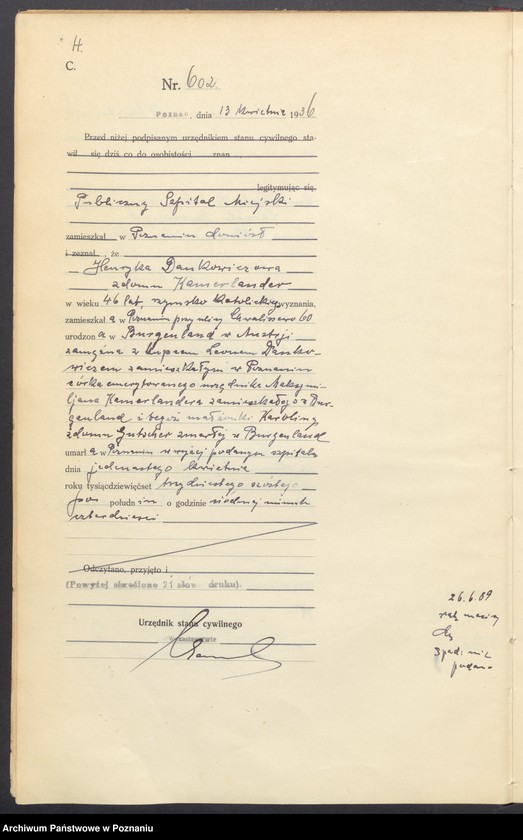 H.
C.
Nr. 602.
Poznań, dnia 13 kwietnia 1936
Przed niżej podpisanym urzędnikiem stanu cywilnego sta-
wił się dziś co do osobistości znan
legitymując się
Publiczny Szpital Miejski
zamieszkał w Poznaniu doniósł
i zeznał, że
Henryka Dankowiczowa
z domu Kamerlander
w wieku 46 lat, rzymsko katolickiego wyznania,
zamieszkał a w Poznaniu przy ulicy Cavalissero 60
urodzon a w Burgenland w Austrji
zamężna z kupcem Leonem Danko-
wiczem zamieszkałym w Poznaniu
córka emerytowanego urzędnika Maksymi-
ljana Kamerlandera zamieszkałego z Bur-
genland i tegoż małżonki Karoliny
z domu Gutscher zmarłej w Burgenland
umarł a w Poznaniu w wyżej podanym szpitalu
dnia jedenastego kwietnia
roku tysiącdziewięćset trzydziestego szóstego
po południu o godzinie siódmej minut
czterdzieści
Odczytano, przyjęto i
(Powyżej skreślono 21 słów druku).
Urzędnik stanu cywilnego
W zastępstwie
26.6.89
podano
Archiwum Państwowe w Poznaniu